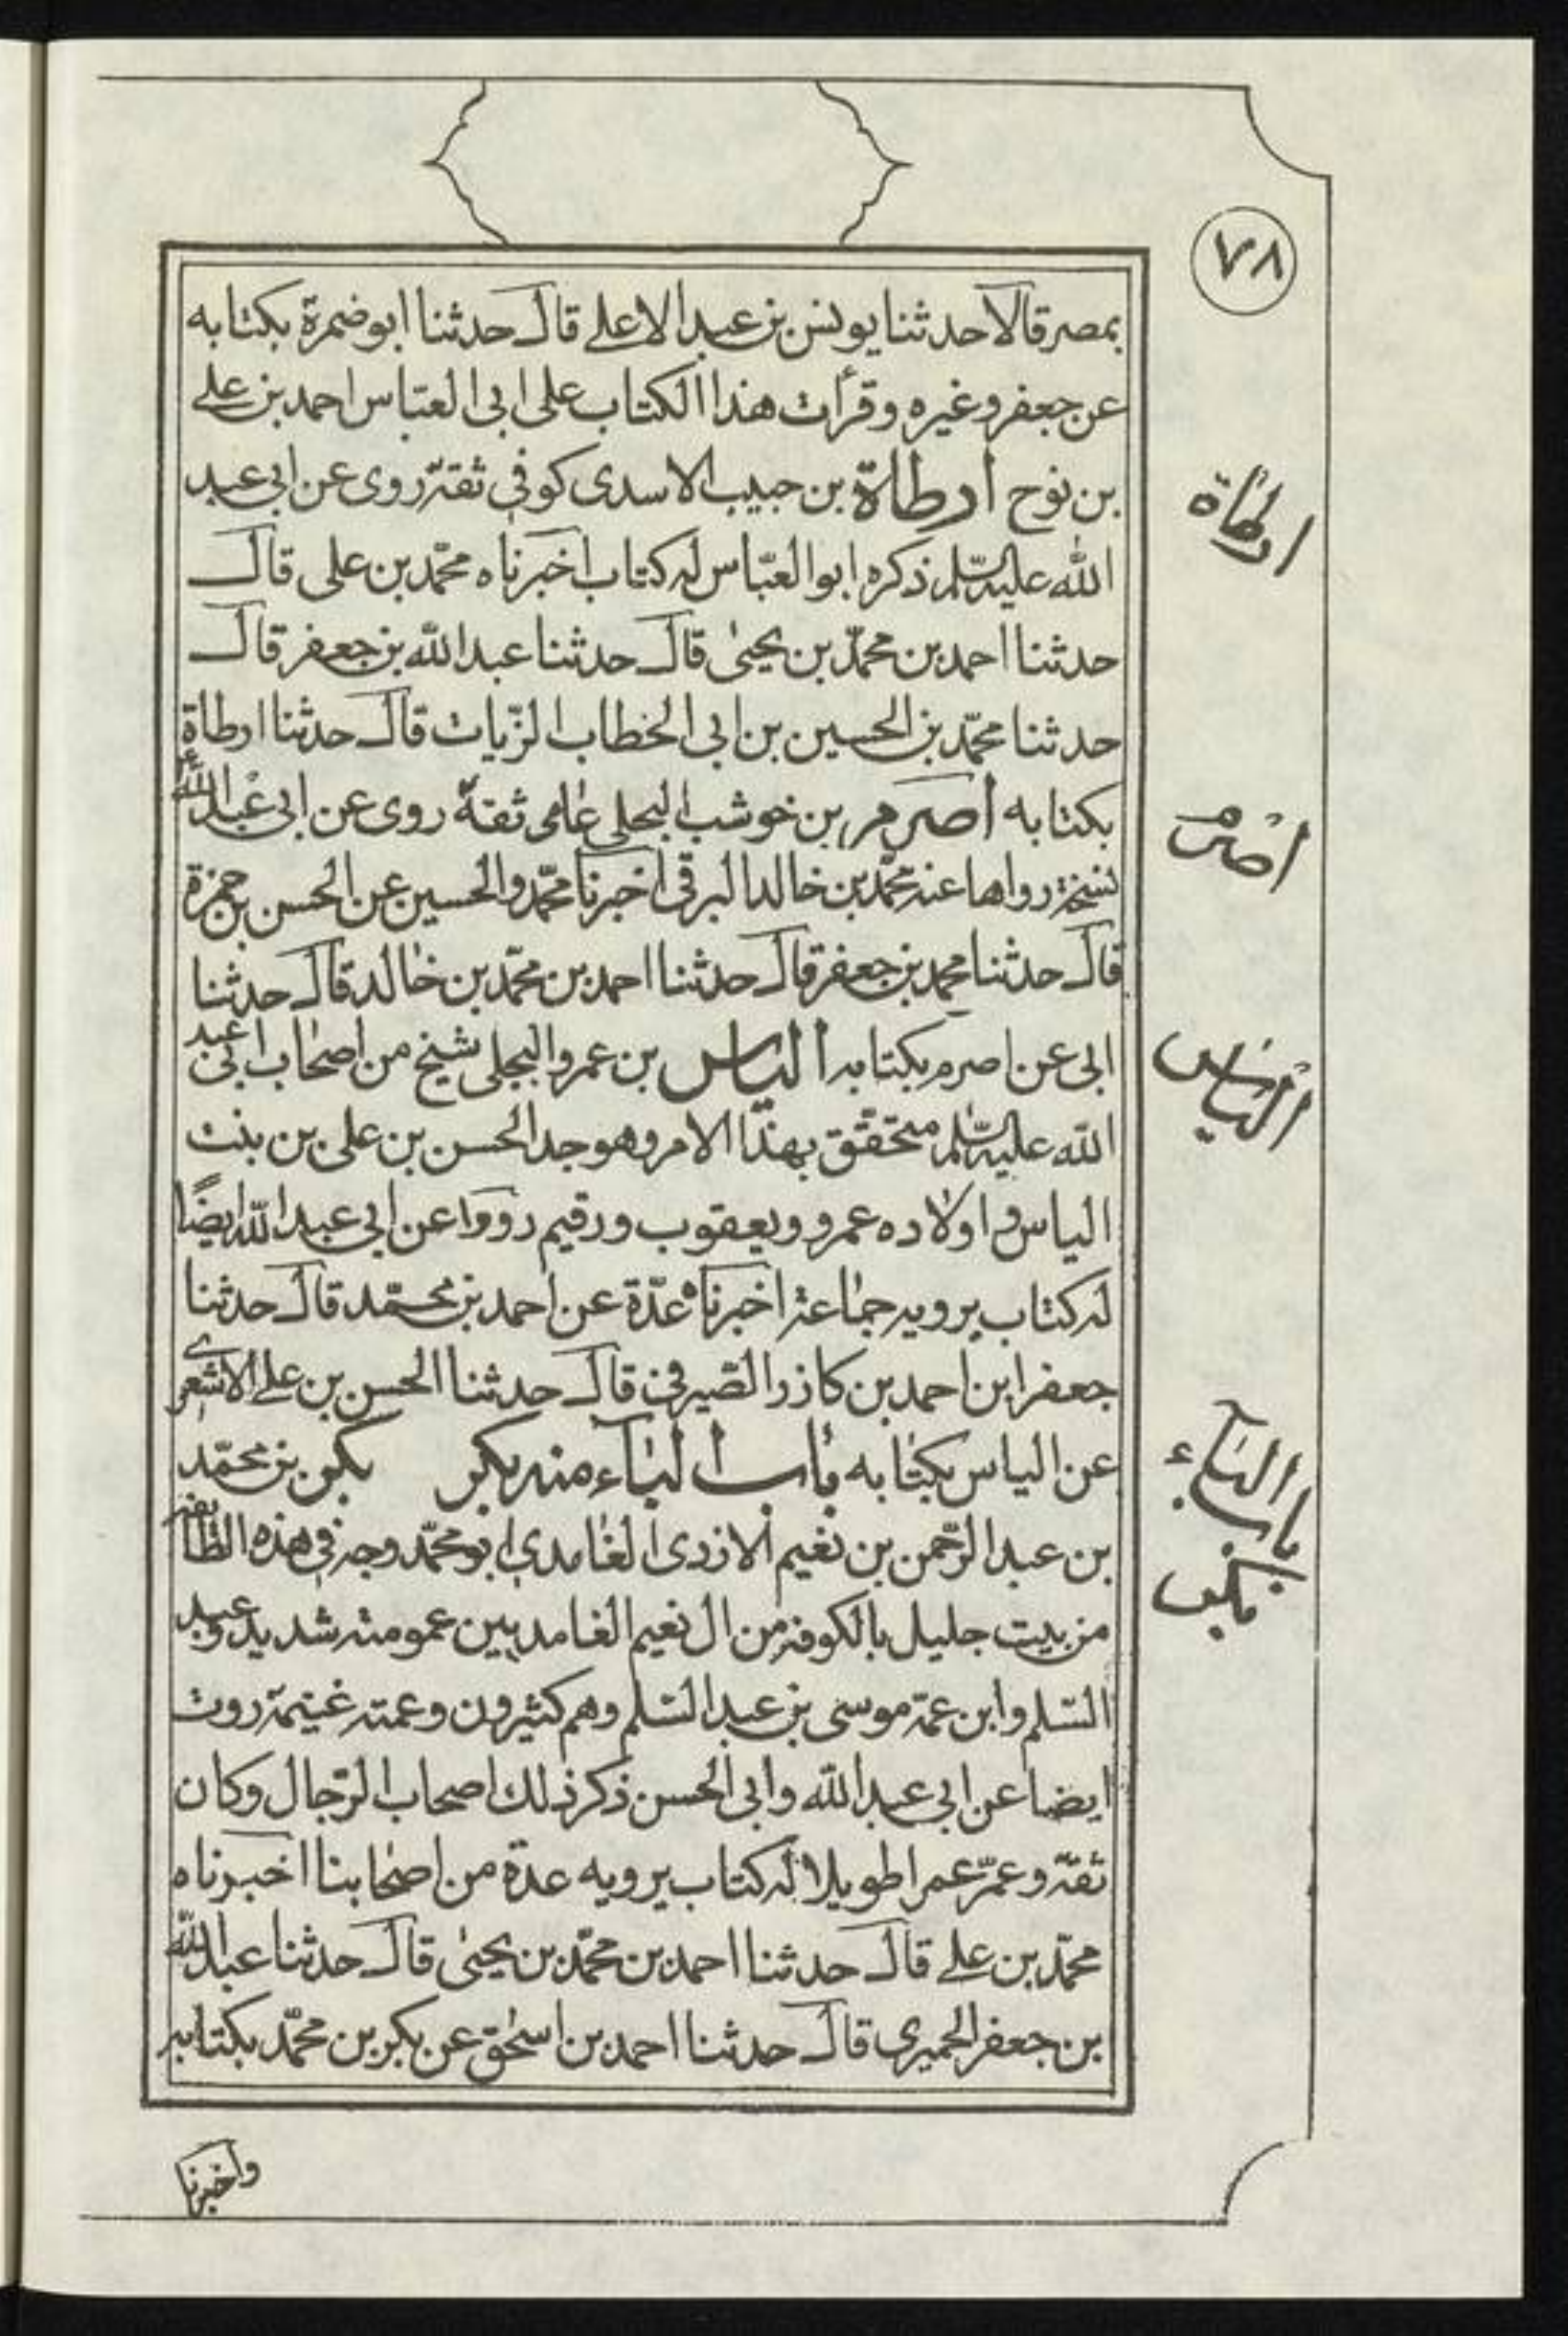 ٧٨
بمصر قالا حدثنا يونس بن عبد الاعلے قال حدثنا ابو ضمرة بكتابه
عن جعفر وغيره وقرأت هذا الكتاب على ابى العبّاس احمد بن علے
بن نوح أرطاة بن حبيب الاسدى كوفى ثقة روى عن ابى عبد
الله عليه السّلم ذكره ابو العبّاس له كتاب اخبرناه محمّد بن على قال
حدثنا احمد بن محمّد بن يحيىٰ قال حدثنا عبد الله بن جعفر قال
حدثنا محمّد بن الحسين بن ابى الخطاب الزّيات قال حدثنا ارطاة
بكتابه أصرم بن خوشب البجلى عامى ثقة روى عن ابى عبد الله ع
نسخة رواها عنه محمّد بن خالد البرقى اخبرنا محمّد والحسين عن الحسن بن حمزة
قال حدثنا محمد بن جعفر قال حدثنا احمد بن محمّد بن خالد قال حدثنا
ابى عن اصرم بكتابه ألياس بن عمرو البجلى شيخ من اصحاب ابى عبد
الله عليه السّلم متحقق بهذا الامر وهو جد الحسن بن على بن بنت
الياس و اولاده عمرو ويعقوب ورقيم رووا عن ابى عبد الله ايضًا
له كتاب يرويه جماعة اخبرناه عدّة عن احمد بن محمّد قال حدثنا
جعفر ابن احمد بن كازر الصّيرفى قال حدثنا الحسن بن علے الاشعرى
عن الياس بكتابه باب الباء منه بكر بكر بن محمّد
بن عبد الرّحمن بن نغيم الازدى الغامدى ابو محمّد وجه فى هذه الطّائفه
من بيت جليل بالكوفه من ال نعيم الغامديين عمومته شديد وعبد
السّلم وابن عمّة موسى بن عبد السّلم وهم كثيرون وعمته غنيمة روت
ايضا عن ابى عبد الله وابى الحسن ذكر ذلك اصحاب الرّجال وكان
ثقة وعمّر عمرا طويلا له كتاب يرويه عدة من اصحابنا اخبرناه
محمّد بن علے قال حدثنا احمد بن محمّد بن يحيىٰ قال حدثنا عبد الله
بن جعفر الحميرى قال حدثنا احمد بن اسحٰق عن بكر بن محمّد بكتابه
واخبرنا
ارطاة
اصرم
الياس
باب الباء
بكر